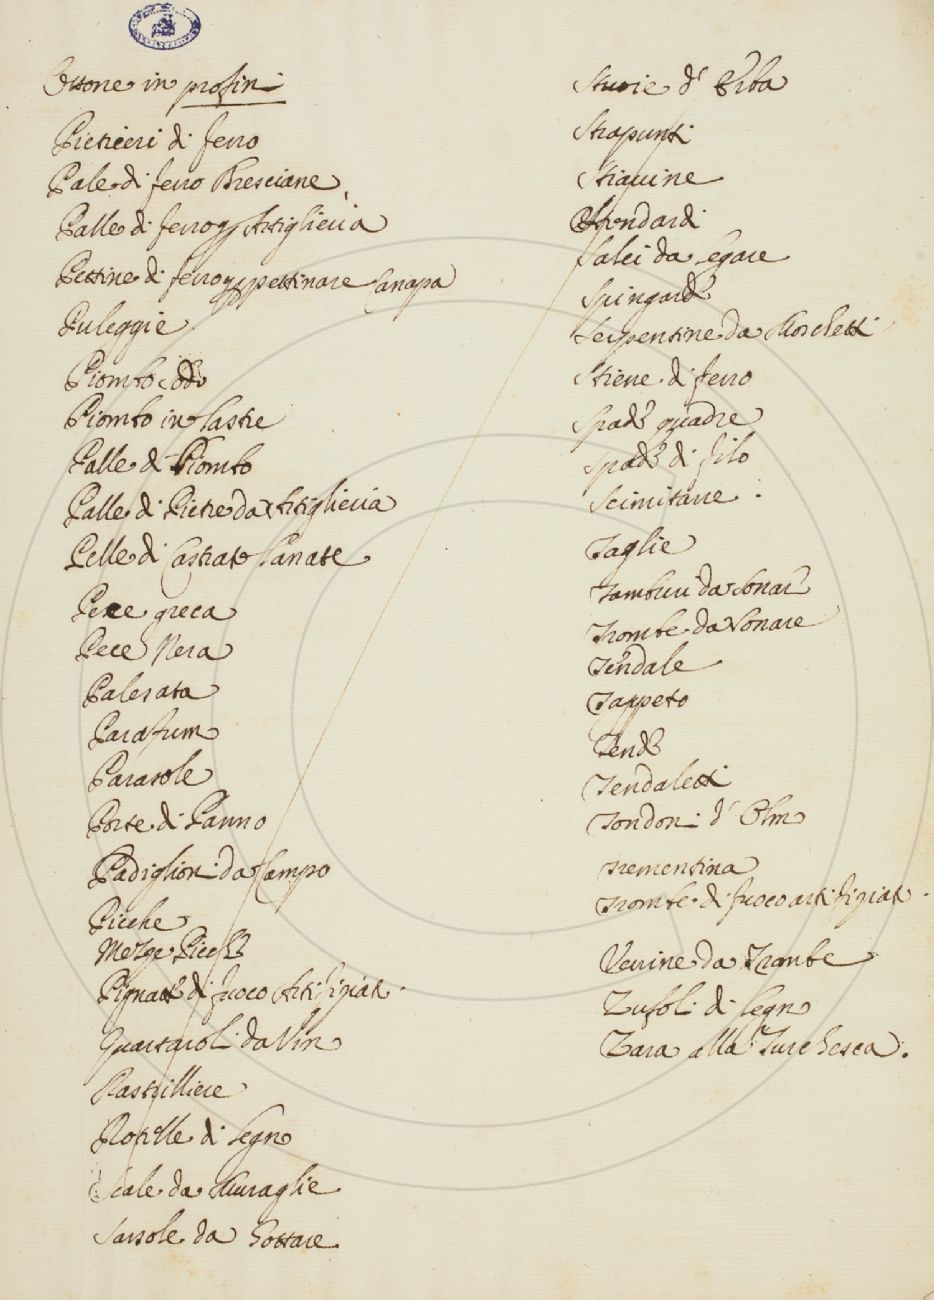 Ottone in profin
Pietrieri di ferro
Pale di ferro Bresciane
Palle di ferro p Artiglieria
Pettine di ferro p pettinare Canapa
Puleggie
Piombo
Piombo in lastre
Palle di Piombo
Palle di Pietre da Artiglieria
Pelle di Castrato Lanate
Pece greca
Pece Nera
Palesata
Parafumo
Parasole
Porte di Panno
Padiglioni da Campo
Picche
Meze Picche
Pignatte di fuoco Artifiziat
Quartaroli da Vin
Rastrilliere
Rotelle di legno
Scale da Muraglie
Sassole da Sottare
Stuoie d' Erba
Strapunti
Stiauine
Stendardi
Salci da legare
Spingarde
Serpentine da Moschetti
Stiene di ferro
Spade quadre
Spade di filo
Scimitarre
Taglie
Tamburi da sonar
Trombe da sonare
Tendale
Tappeto
Tende
Tendaletti
Tondoni d' Olmo
Trementina
Trombe di fuoco artifiziat
Verrine da Trombe
Zufoli di legno
Zara alla Turchesca.